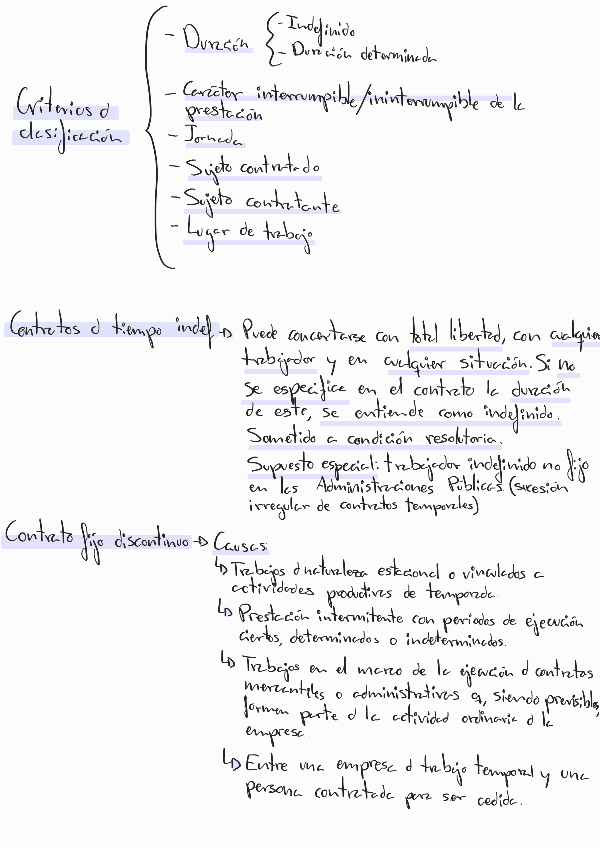 Criterios d
clasificación
- Duración
- Indefinido
- Duración determinada
- Carácter interrumpible/ininterrumpible de la
prestación
- Jornada
- Sujeto contratado
- Sujeto contratante
- Lugar de trabajo
Contratos d tiempo indef → Puede concertarse con total libertad, con cualquier
trabajador y en cualquier situación. Si no
se especifica en el contrato la duración
de este, se entiende como indefinido.
Sometido a condición resolutoria.
Supuesto especial: trabajador indefinido no fijo
en las Administraciones Públicas (sucesión
irregular de contratos temporales)
Contrato fijo discontinuo → Causas:
↳ Trabajos d naturaleza estacional o vinculados a
actividades productivas de temporada.
↳ Prestación intermitente con periodos de ejecución
ciertos, determinados o indeterminados.
↳ Trabajos en el marco de la ejecución d contratas
mercantiles o administrativas q, siendo previsibles,
formen parte d la actividad ordinaria d la
empresa.
↳ Entre una empresa d trabajo temporal y una
persona contratada para ser cedida.